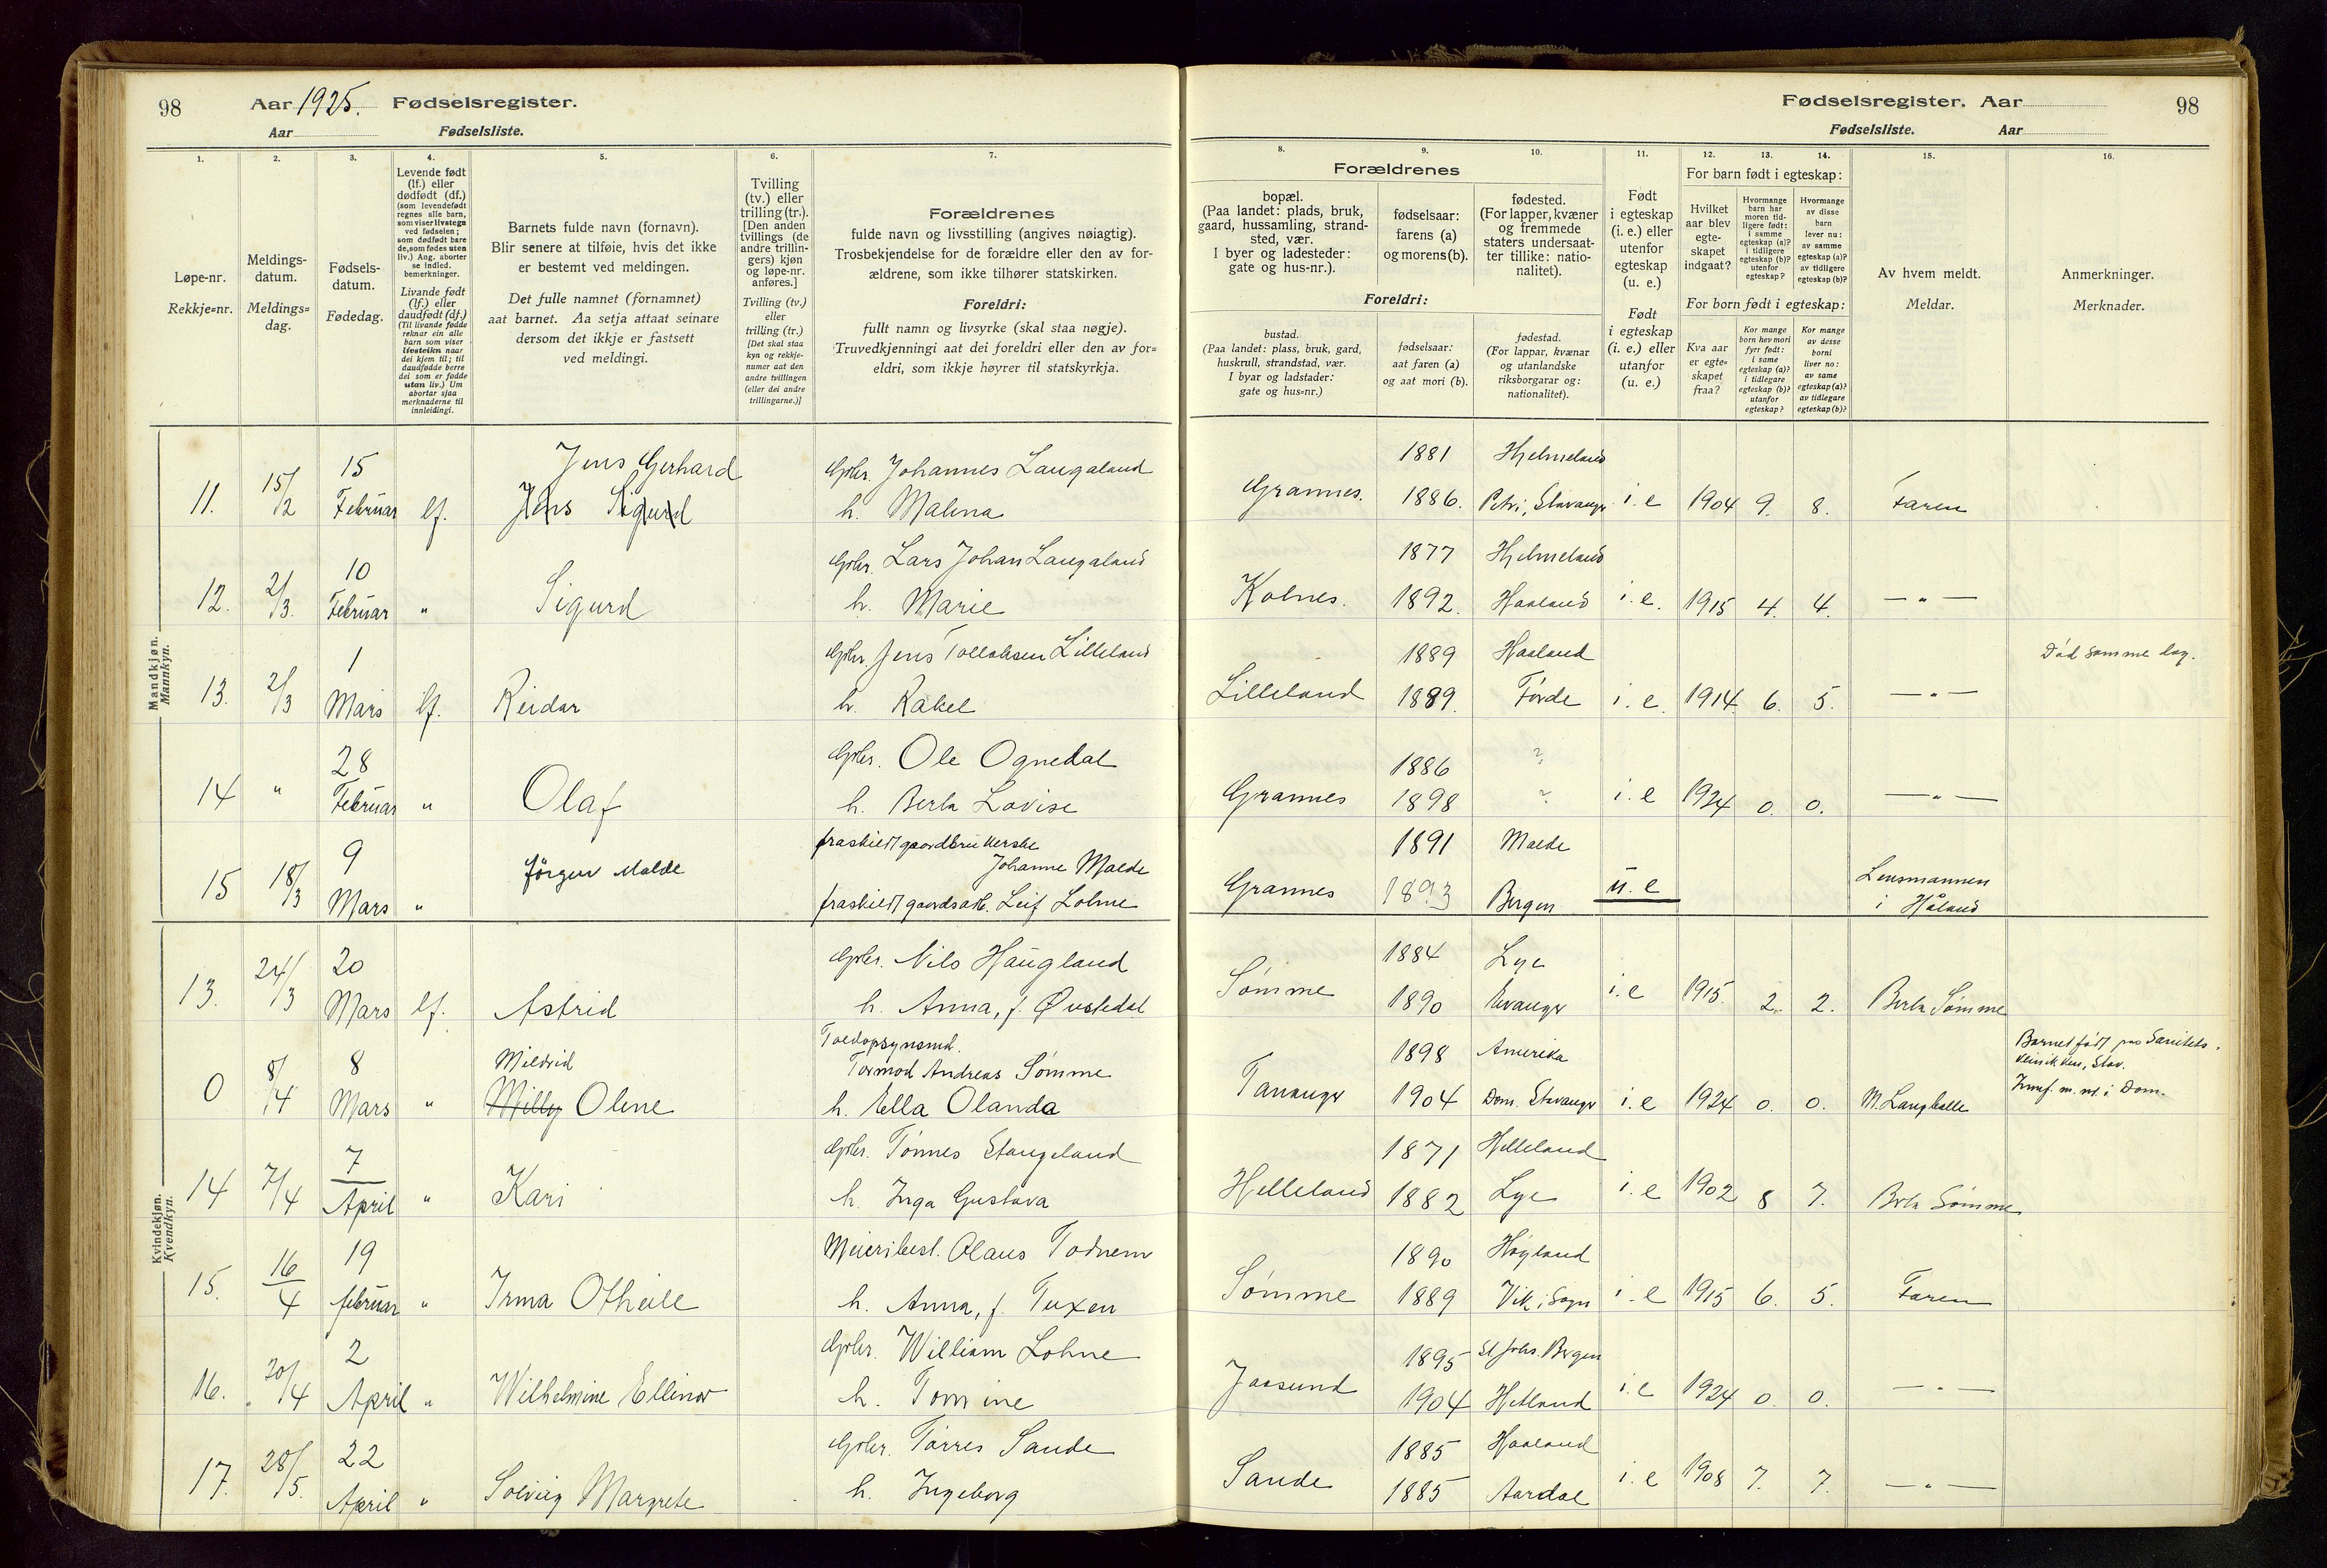 98 Aar 1925. Fødselsregister.
Aar Fødselsliste.
Fødselsregister. Aar 98
Fødselsliste. Aar
1. 2. 3. 4. 5. 6. 7.
Løpe-nr.
Rekkje=nr.
Meldings-
datum.
Meldings=
dag.
Fødsels-
datum.
Fødedag.
Levende født
(lf.) eller
dødfødt (df.)
(som levendefødt
regnes alle barn,
som viser livstegn
ved fødselen;
som dødfødt bare
de, som fødes uten
liv.) Ang. aborter
se indled.
bemerkninger.
Livande født
(lf.) eller
daudfødt (df.)
(Til livande fødde
reknar ein alle
barn som viser
livsteikn naar
dei kjem til; til
daudfødde berre
dei som er fødde
utan liv.) Um
abortar sjaa
merknaderne til
innleidingi.
Barnets fulde navn (fornavn).
Blir senere at tilføie, hvis det ikke
er bestemt ved meldingen.
Det fulle namnet (fornamnet)
aat barnet. Aa setja attaat seinare
dersom det ikkje er fastsett
ved meldingi.
Tvilling
(tv.) eller
trilling (tr.).
[Den anden
tvillings (de
andre trillin-
gers) kjøn
og løpe-nr.
anføres.]
Tvilling (tv.)
eller
trilling (tr.)
[Det skal staa
kyn og rekkje-
numer aat den
andre tvillingen
(eller dei andre
trillingarne.)]
Forældrenes
fulde navn og livsstilling (angives nøiagtig).
Trosbekjendelse for de forældre eller den av for-
ældrene, som ikke tilhører statskirken.
Foreldri:
fullt namn og livsyrke (skal staa nøgje).
Truvedkjenningi aat dei foreldri eller den av for=
eldri, som ikkje høyrer til statskyrkja.
8. 9. 10. 11. 12. 13. 14. 15. 16.
Forældrenes
bopæl.
(Paa landet: plads, bruk,
gaard, hussamling, strand-
sted, vær.
I byer og ladesteder:
gate og hus-nr.).
fødselsaar:
farens (a)
og morens (b).
fødested.
(For lapper, kvæner
og fremmede
staters undersaat-
ter tillike: natio-
nalitet).
Foreldri:
bustad.
(Paa landet: plass, bruk, gard,
huskrull, strandstad, vær.
I byar og ladstader:
gate og hus=nr.)
fødselsaar:
aat faren (a)
og aat mori (b).
fødestad.
(For lappar, kvænar
og utanlandske
riksborgarar og:
nationalitet).
Født
i egteskap
(i. e.) eller
utenfor
egteskap
(u. e.)
Født
i egteskap
(i. e.) eller
utanfor
(u. e.)
For barn født i egteskap:
Hvilket
aar blev
egte-
skapet
indgaat?
Hvormange
barn har
moren tid-
ligere født:
i samme
egteskap (a)?
i tidligere
egteskap (b)?
utenfor
egteskap?
Hvormange
av disse
barn
lever nu:
av samme
egteskap (a)?
av tidligere
egteskap (b)?
For born født i egteskap:
Kva aar
er egte-
skapet
fraa?
Kor mange
born hev mori
fyrr født:
i same
egteskap (a)?
i tidlegare
egteskap (b)?
utanfor
egteskap?
Kor mange
av desse
borni
liver no:
av same
egteskap (a)?
av tidlegare
egteskap (b)?
Av hvem meldt.
Meldar.
Anmerkninger.
Merknader.
Mandkjøn.
Mannkyn.
11. 15/2 15 Februar lf. Jens Gerhard
Jens Sigurd
Gbr. Johannes Laugaland
h. Malena
Grannes. 1881 Hjelmeland
1886. Petri, Stavanger i.e 1904 9. 8. Faren
12. 2/3. 10 Februar " Sigurd
Gbr. Lars Johan Laugaland
h. Marie
Kolnes. 1877 Hjelmeland
1892. Haaland i.e. 1915 4. 4. — " —
13. 2/3 1 Mars lf. Reidar
Gbr. Jens Tollaksen Lilleland
h. Rakel
Lilleland 1889 Haaland
1889. Førde i.e. 1914. 6. 5. — " — Død samme dag.
14 " 28 Februar " Olaf
Gbr. Ole Ognedal
h. Berta Lovise
Grannes 1886 ?
1898 ? i.e 1924 0. 0. — " —
15 18/3 9 Mars " Jörgen Malde
fraskilt gaardbrukerske
Johanne Malde
fraskilt gaardsarb. Leif Lohne
Grannes 1891 Malde
1893 Bergen u.e Lensmannen
i Håland
Kvindekjøn.
Kvendkyn.
13. 24/3 20 Mars lf. Astrid
Gbr. Nils Haugland
h. Anna, f. Øvstedal
Sømme 1884 Lye
1890 Stavanger i.e 1915. 2. 2. Berta Sømme
0 8/4 8 Mars " Mildrid
Milly Oline
Toldopsynsmd.
Tormod Andreas Sømme
h. Ella Olanda
Tananger 1898 Amerika
1904 Dom. Stavanger i.e 1924 0. 0. M. Langhelle
Barnet født paa Sanitets-
klinikken, Stav.
Innf. m. nr. i Dom.
14 7/4 7 April " Kari
Gbr. Tönnes Stangeland
h. Inga Gustava
Helleland 1871 Helleland
1882 Lye i.e 1902 8 7. Berta Sømme
15. 16/4 19 februar " Irma Otheile
Meieribest. Olaus Todnem
h. Anna, f. Tuxen
Sømme 1890 Høyland
1889 Vik i Sogn i.e 1915 6. 5. Faren
16. 20/4 2 April " Wilhelmine Ellinor
Gbr. William Lohne
h. Tomine
Jaasund 1895 St. Johs. Bergen
1904 Hetland i.e 1924 0. 0. — " —
17. 28/5. 22 April " Solveig Margrete
Gbr. Tørres Sande
h. Ingeborg
Sande 1885 Haaland
1885 Aardal i.e 1908 7. 7. — " —